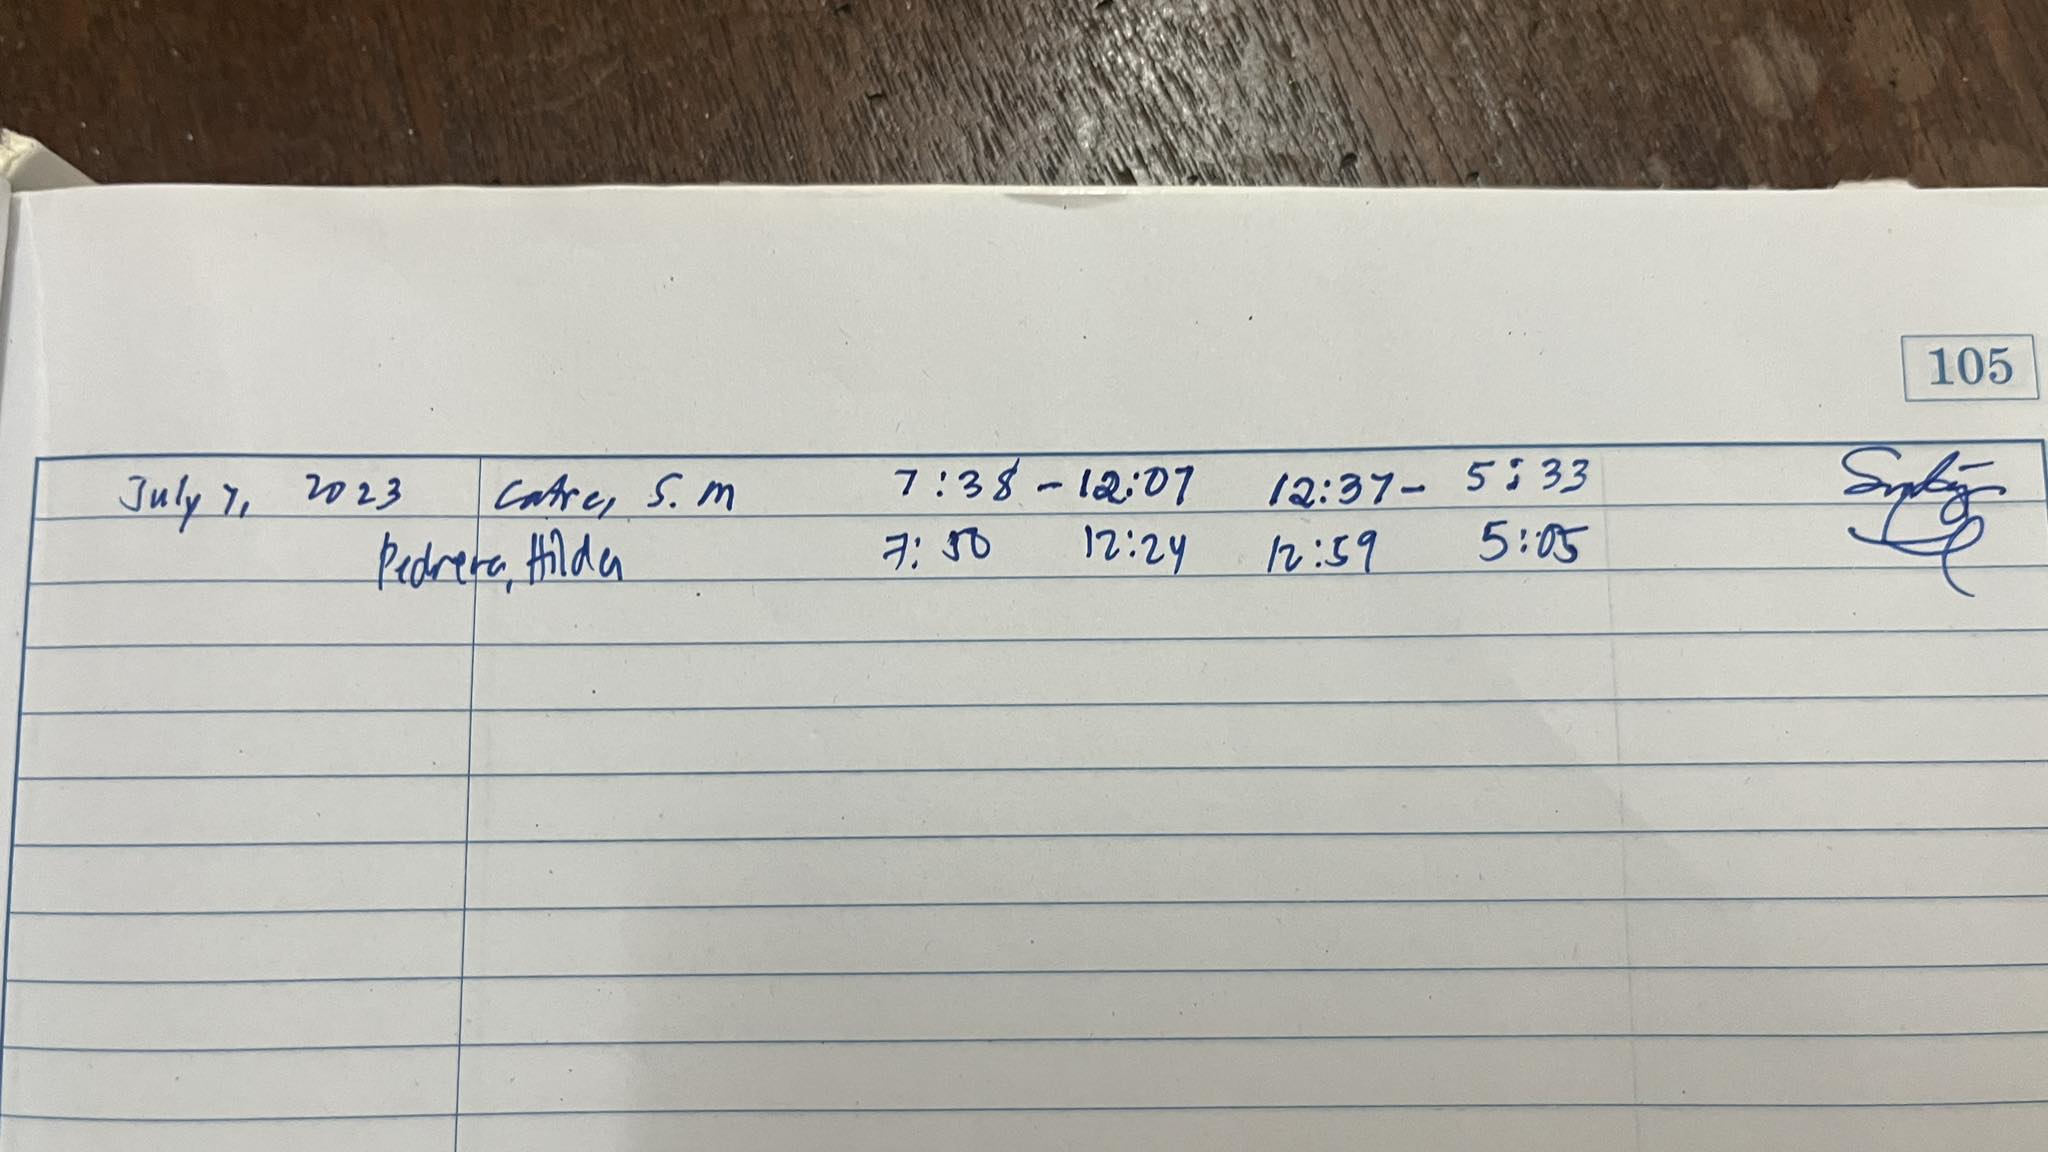 105
July 7, 2023 S. M 7:38 - 12:07 12:37 - 5:33
Pedrera, Hilda 7:50 12:24 12:59 5:05